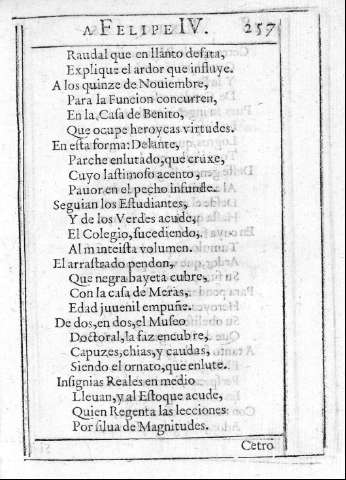 A FELIPE IV. 257
Raudal que en llanto desata,
Explique el ardor que influye.
A los quinze de Nouiembre,
Para la Funcion concurren,
En la, Casa de Benito,
Que ocupe heroycas virtudes.
En esta forma: Delante,
Parche enlutado, que cruxe,
Cuyo lastimoso acento,
Pauor en el pecho infunde.
Seguian los Estudiantes,
Y de los Verdes acude,
El Colegio, sucediendo,
Al minteista volumen.
El arrastrado pendon,
Que negra bayeta cubre,
Con la casa de Meras,
Edad juuenil empuñe.
De dos, en dos, el Museo
Doctoral, la faz encubre,
Capuzes, chias, y caudas,
Siendo el ornato, que enlute.
Insignias Reales en medio
Lleuan, y al Estoque acude,
Quien Regenta las lecciones
Por silua de Magnitudes.
Cetro